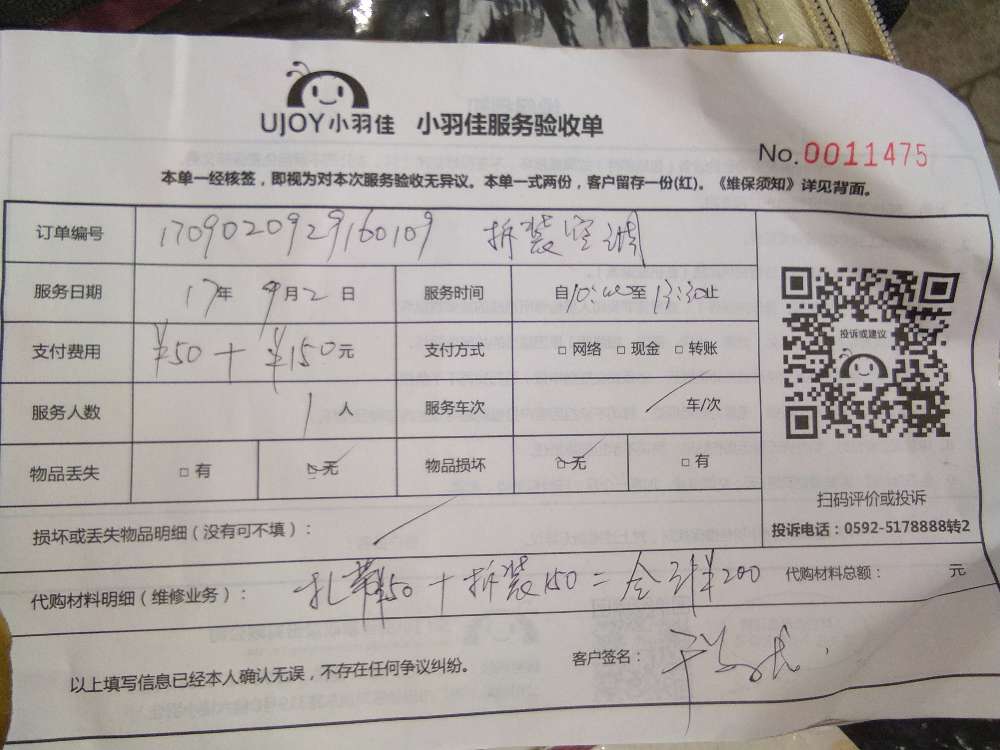 UJOY小羽佳 小羽佳服务验收单
No.0011475
本单一经核签，即视为对本次服务验收无异议。本单一式两份，客户留存一份(红)。《维保须知》详见背面。
订单编号 1709020929160109 拆装空调
服务日期 17年9月2日 服务时间 自10:00至13:30止
支付费用 ¥50+¥150元 支付方式 □网络 □现金 □转账
服务人数 1人 服务车次 车/次
物品丢失 □有 □无 物品损坏 □无 □有
投诉或建议
扫码评价或投诉
投诉电话：0592-5178888转2
损坏或丢失物品明细（没有可不填）：
代购材料明细（维修业务）： 扎带50+拆装150=合计¥200 代购材料总额： 元
以上填写信息已经本人确认无误，不存在任何争议纠纷。 客户签名：